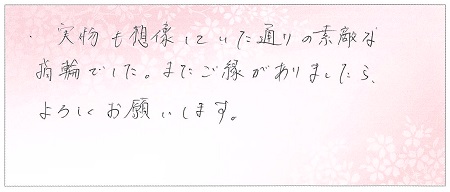 ・実物も想像していた通りの素敵な
指輪でした。またご縁がありましたら、
よろしくお願いします。